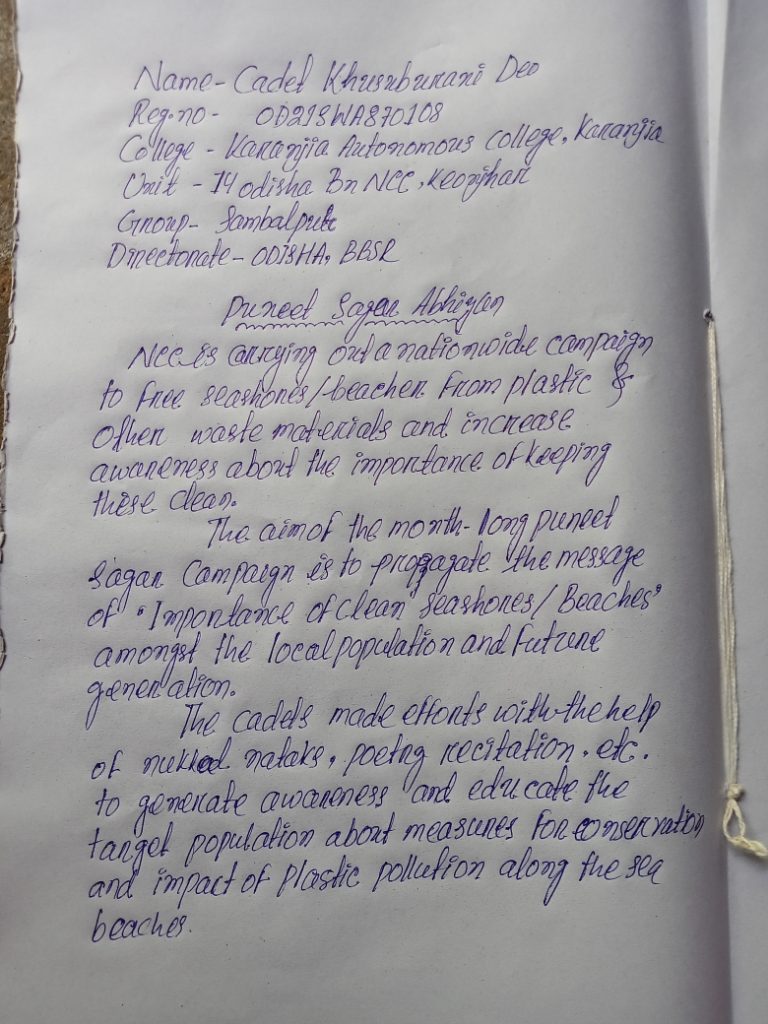 Name- Cadet Khusuburani Deo
Reg.no - OD21SWA870108
College - Karanjia Autonomous college, Karanjia
Unit - 14 odisha Bn NCC, Keonjhar
Group- Sambalpur
Directorate- ODISHA, BBSR
Puneet Sagar Abhigan
NCC is carrying out a nationwide campaign
to free seashores/beacher from plastic &
other waste materials and increase
awareness about the importance of keeping
these clean.
The aim of the month-long puneet
Sagar Campaign is to propagate the message
of "Importance of clean seashores/Beaches"
amongst the local population and future
generation.
The cadets made efforts with the help
of nukkad nataks, poetry recitation, etc.
to generate awareness and educate the
target population about measures for conservation
and impact of plastic pollution along the sea
beaches.